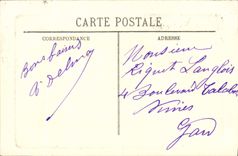 CARTE POSTALE
CORRESPONDANCE
ADRESSE
Bons baisers
Monsieur
Riquet Langlois
4 Boulevard Talabot
Nimes
Gard